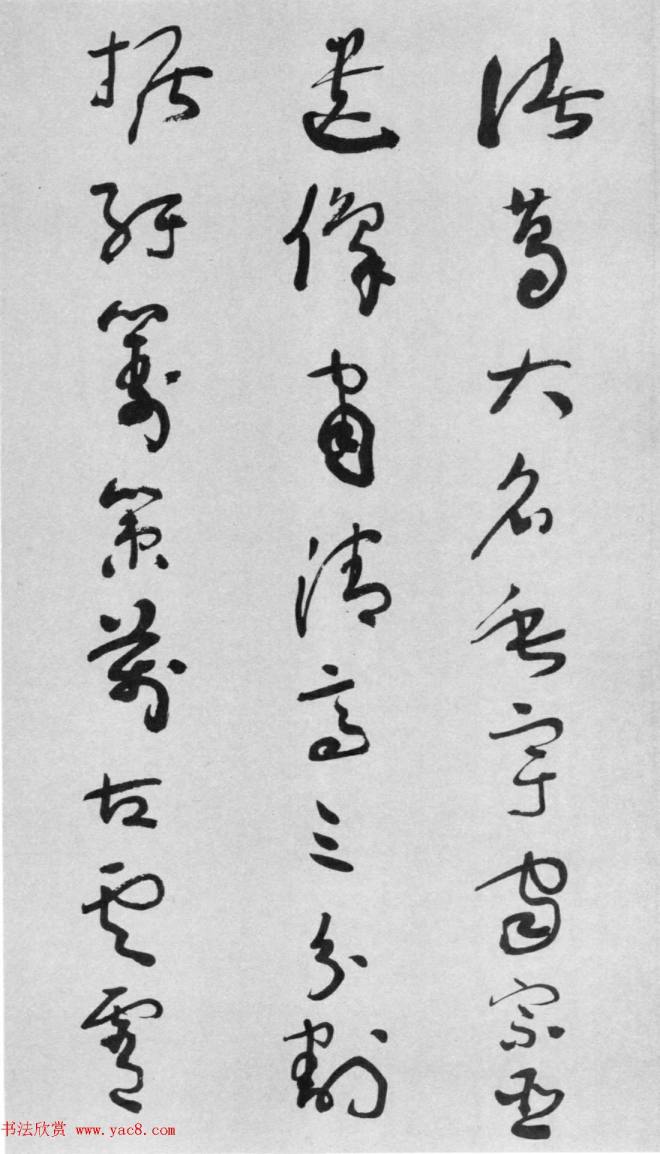 諸葛大名垂宇宙宗臣
遺像肅清高三分割
據紆籌策萬古雲霄
书法欣赏 www.yac8.com